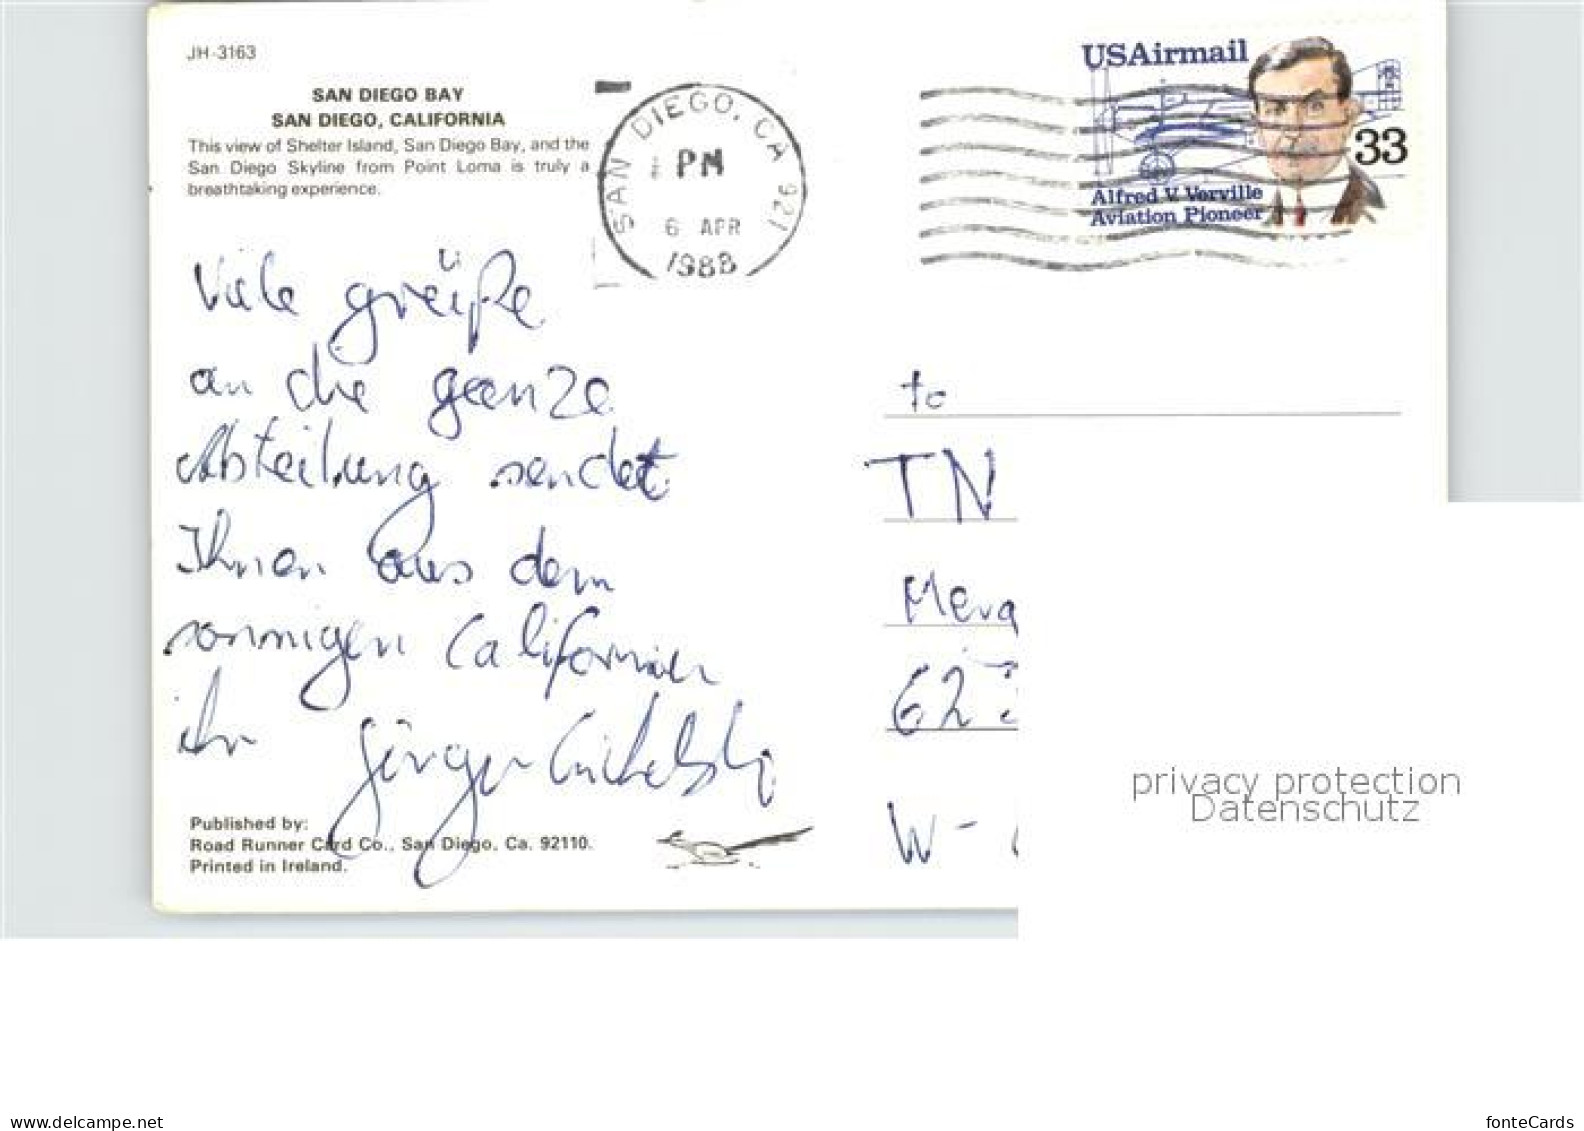 JH-3163
SAN DIEGO BAY
SAN DIEGO, CALIFORNIA
This view of Shelter Island, San Diego Bay, and the
San Diego Skyline from Point Loma is truly a
breathtaking experience.
SAN DIEGO, CA 921
PM
6 APR
1988
USAirmail
33
Alfred V. Verville
Aviation Pioneer
Viele grüße
an die ganze
Abteilung sendet
Ihnen aus dem
sonnigen Californien
ihr Jürgen
to
TN
62
W-
Published by:
Road Runner Card Co., San Diego, Ca. 92110.
Printed in Ireland.
privacy protection
Datenschutz
www.delcampe.net
fonteCards